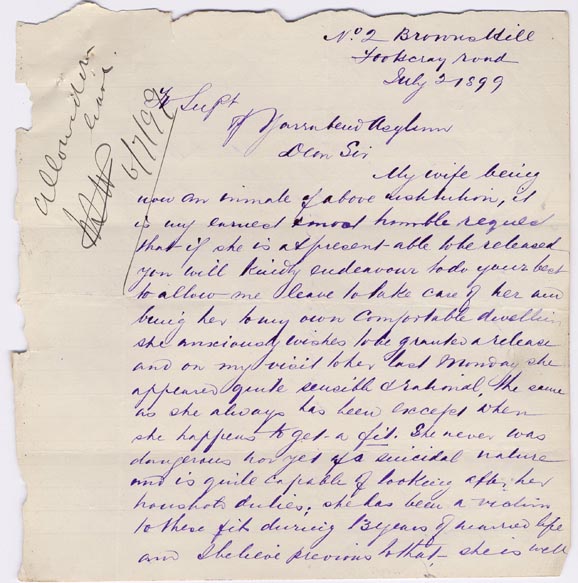 No 2 Browns Hill
Footscray road
July 2 1899
allowed on
leave
6/7/99
To Supt
of Yarrabend Asylum
Dear Sir
My wife being
now an inmate of above institution, it
is my earnest & most humble request
that if she is at present able to be released
you will kindly endeavour to do your best
to allow me leave to take care of her and
bring her to my own Comfortable dwelling
she anxiously wishes to be granted a release
and on my visit to her last Monday she
appeared quite sensible & rational, the same
as she always has been except when
she happens to get a fit. She never was
dangerous nor yet of a suicidal nature
and is quite capable of looking after her
household duties, she has been a victim
to these fits during 13 years of married life
and I believe previous to that she is well